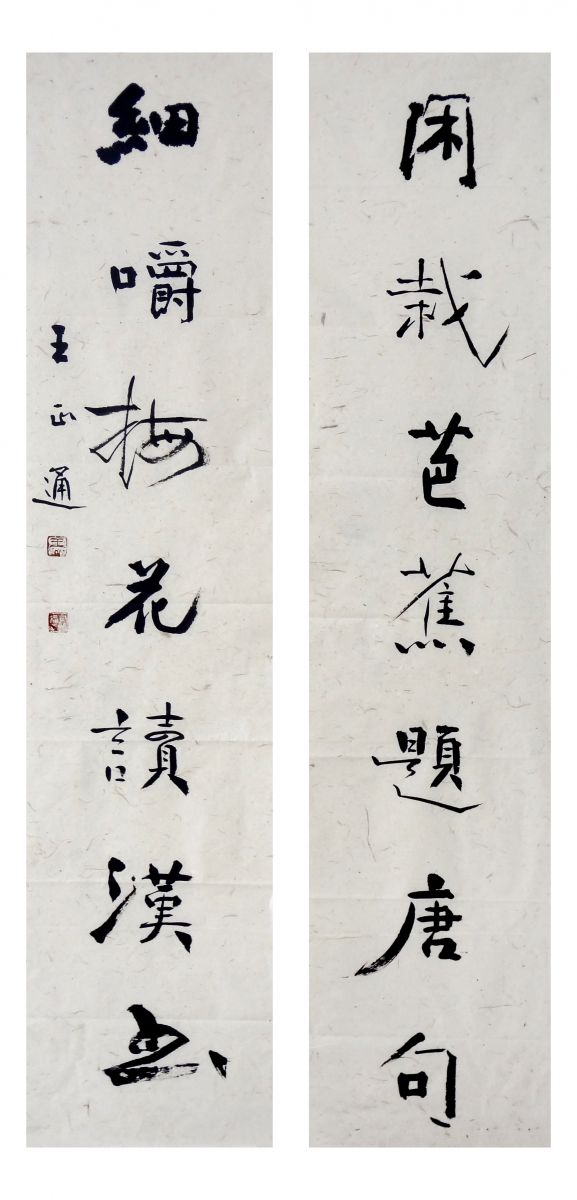 閑栽芭蕉題唐句
細嚼梅花讀漢書
王正通